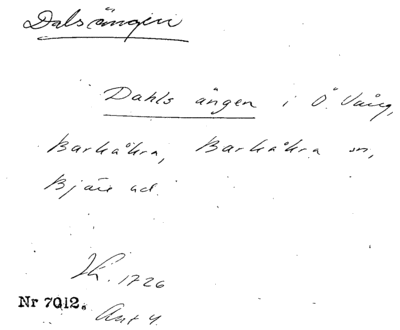 Dalsängen
Dahls ängen i Ö. Vång,
Barkåkra, Barkåkra sn,
Bjäre hd.
1726
Nr 7012.